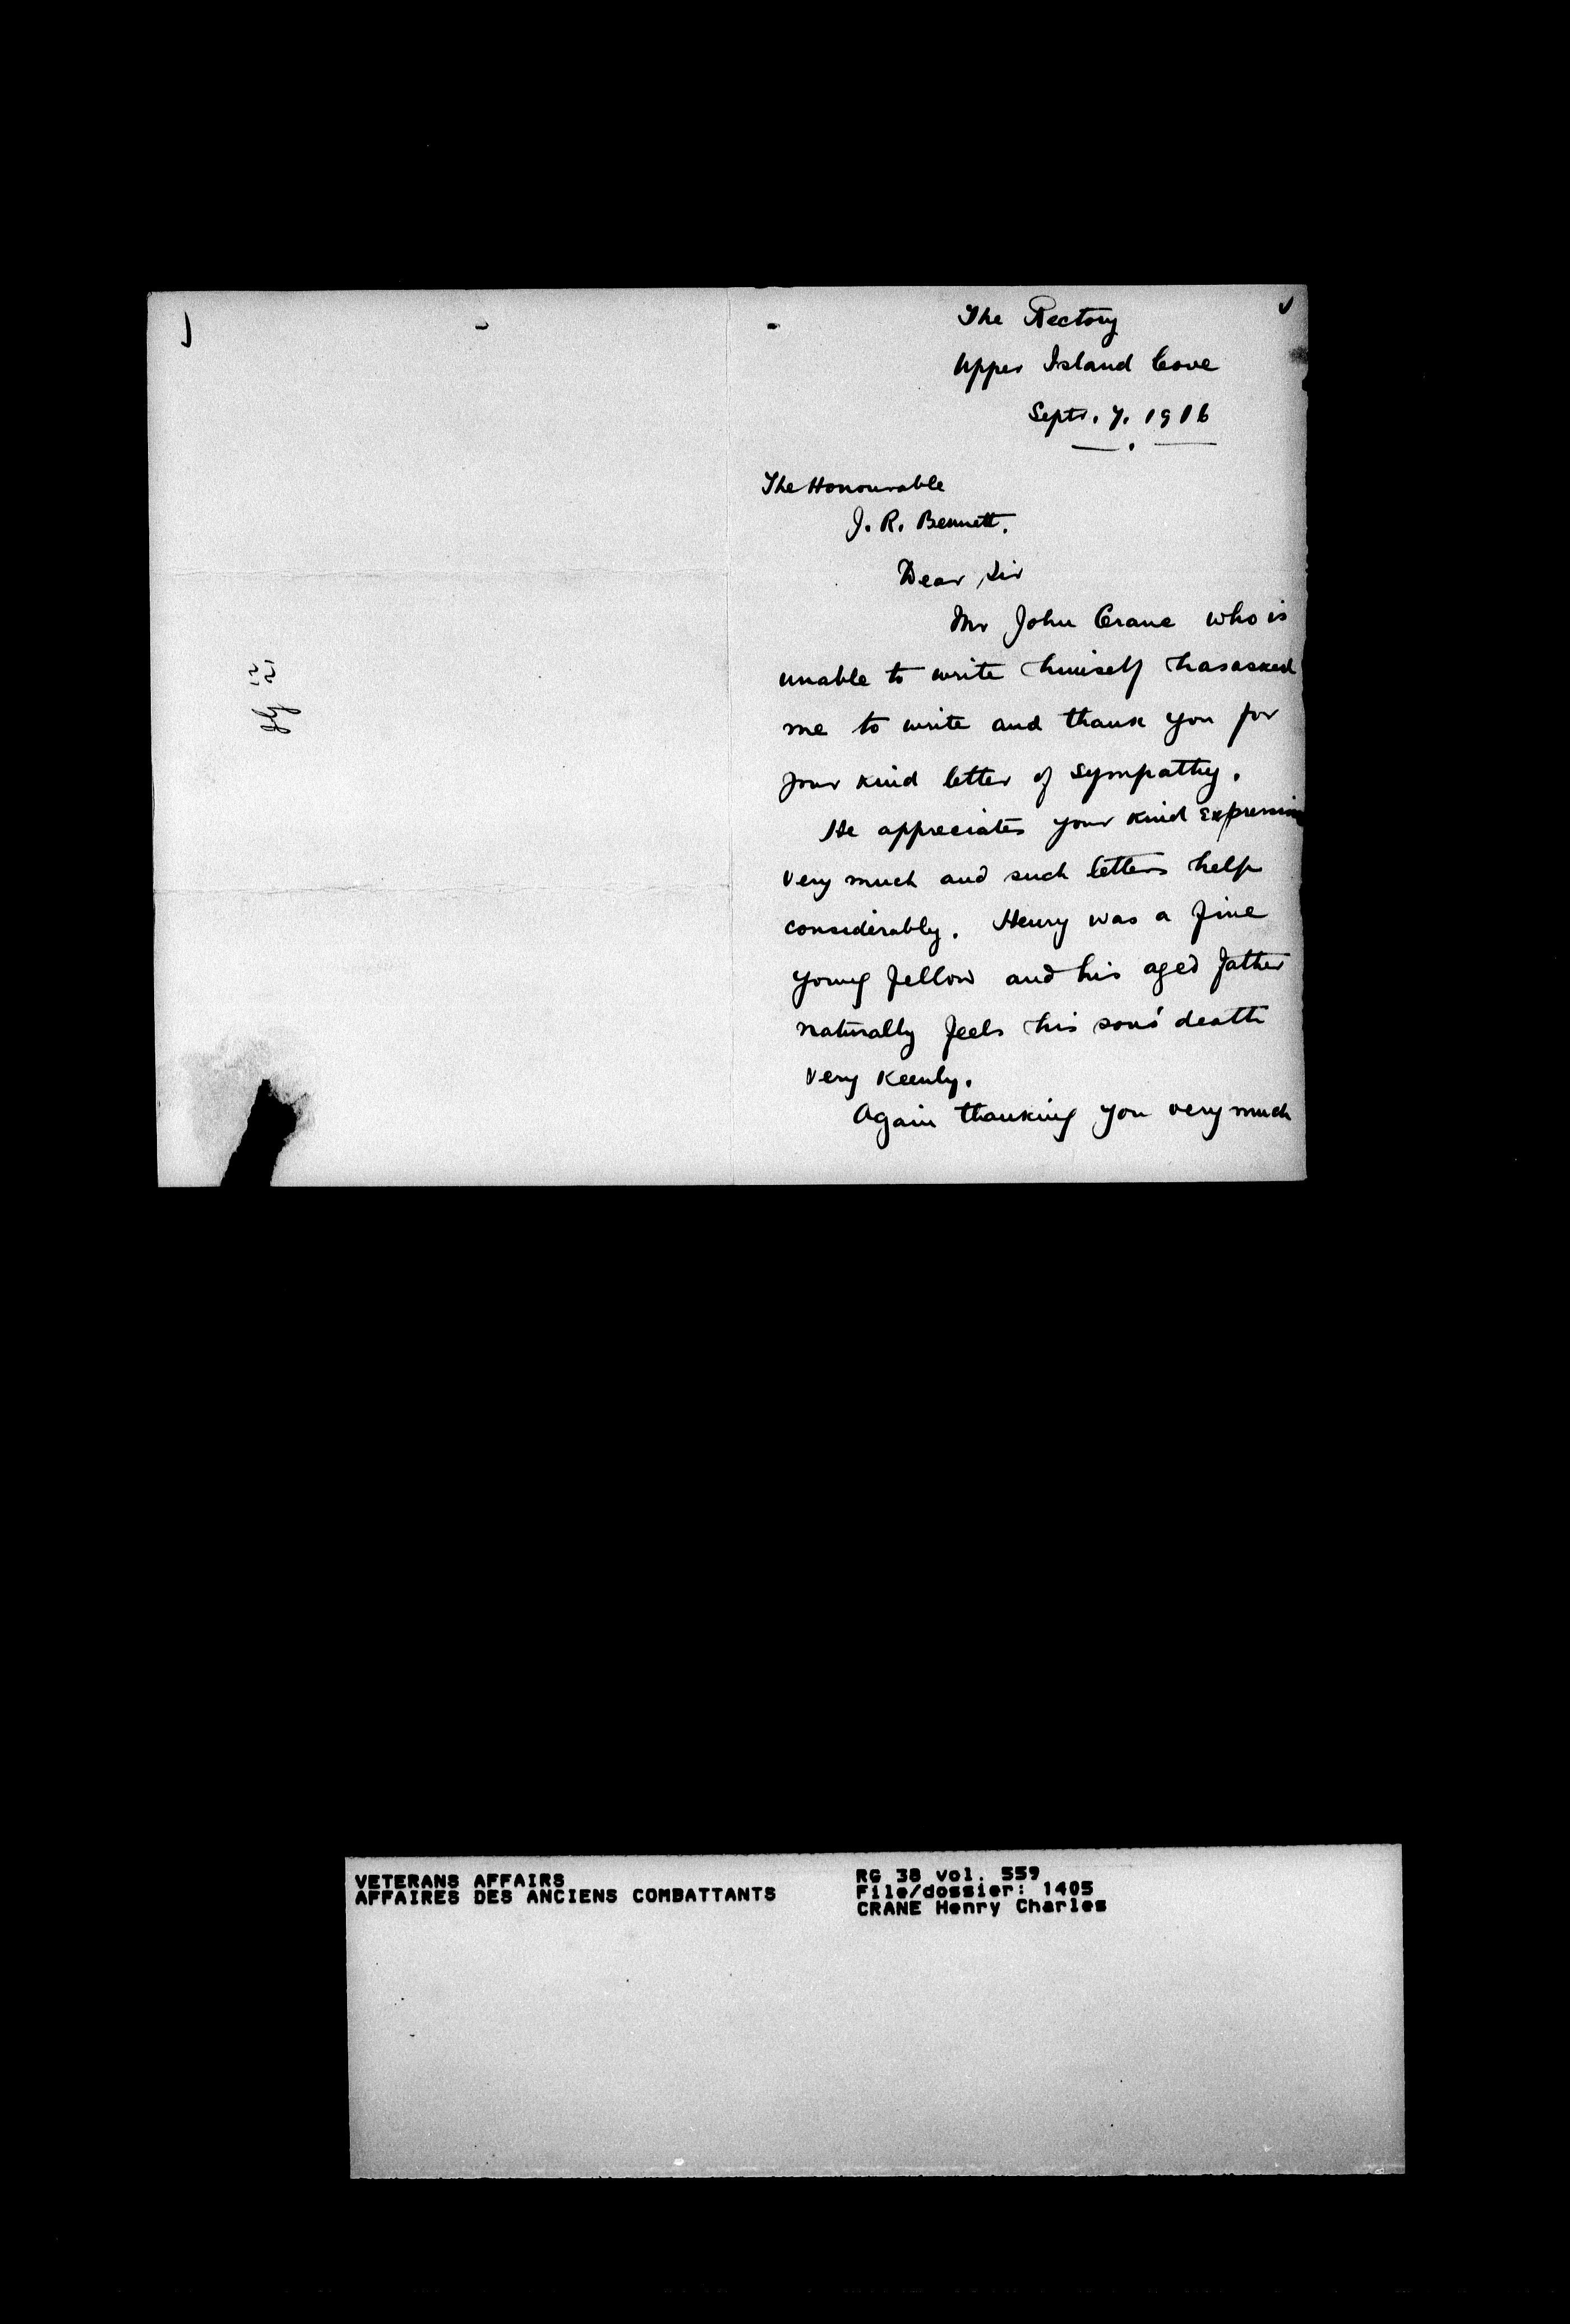 The Rectory
Upper Island Cove
Septr. 7. 1916
The Honourable
J. R. Bennett.
Dear Sir
Mr John Crane who is
unable to write himself has asked
me to write and thank you for
your kind letter of sympathy.
He appreciates your kind expression
very much and such letters help
considerably. Henry was a fine
young fellow and his aged father
naturally feels his son's death
very keenly.
Again thanking you very much
VETERANS AFFAIRS
AFFAIRES DES ANCIENS COMBATTANTS
RG 38 vol. 559
File/dossier: 1405
CRANE Henry Charles